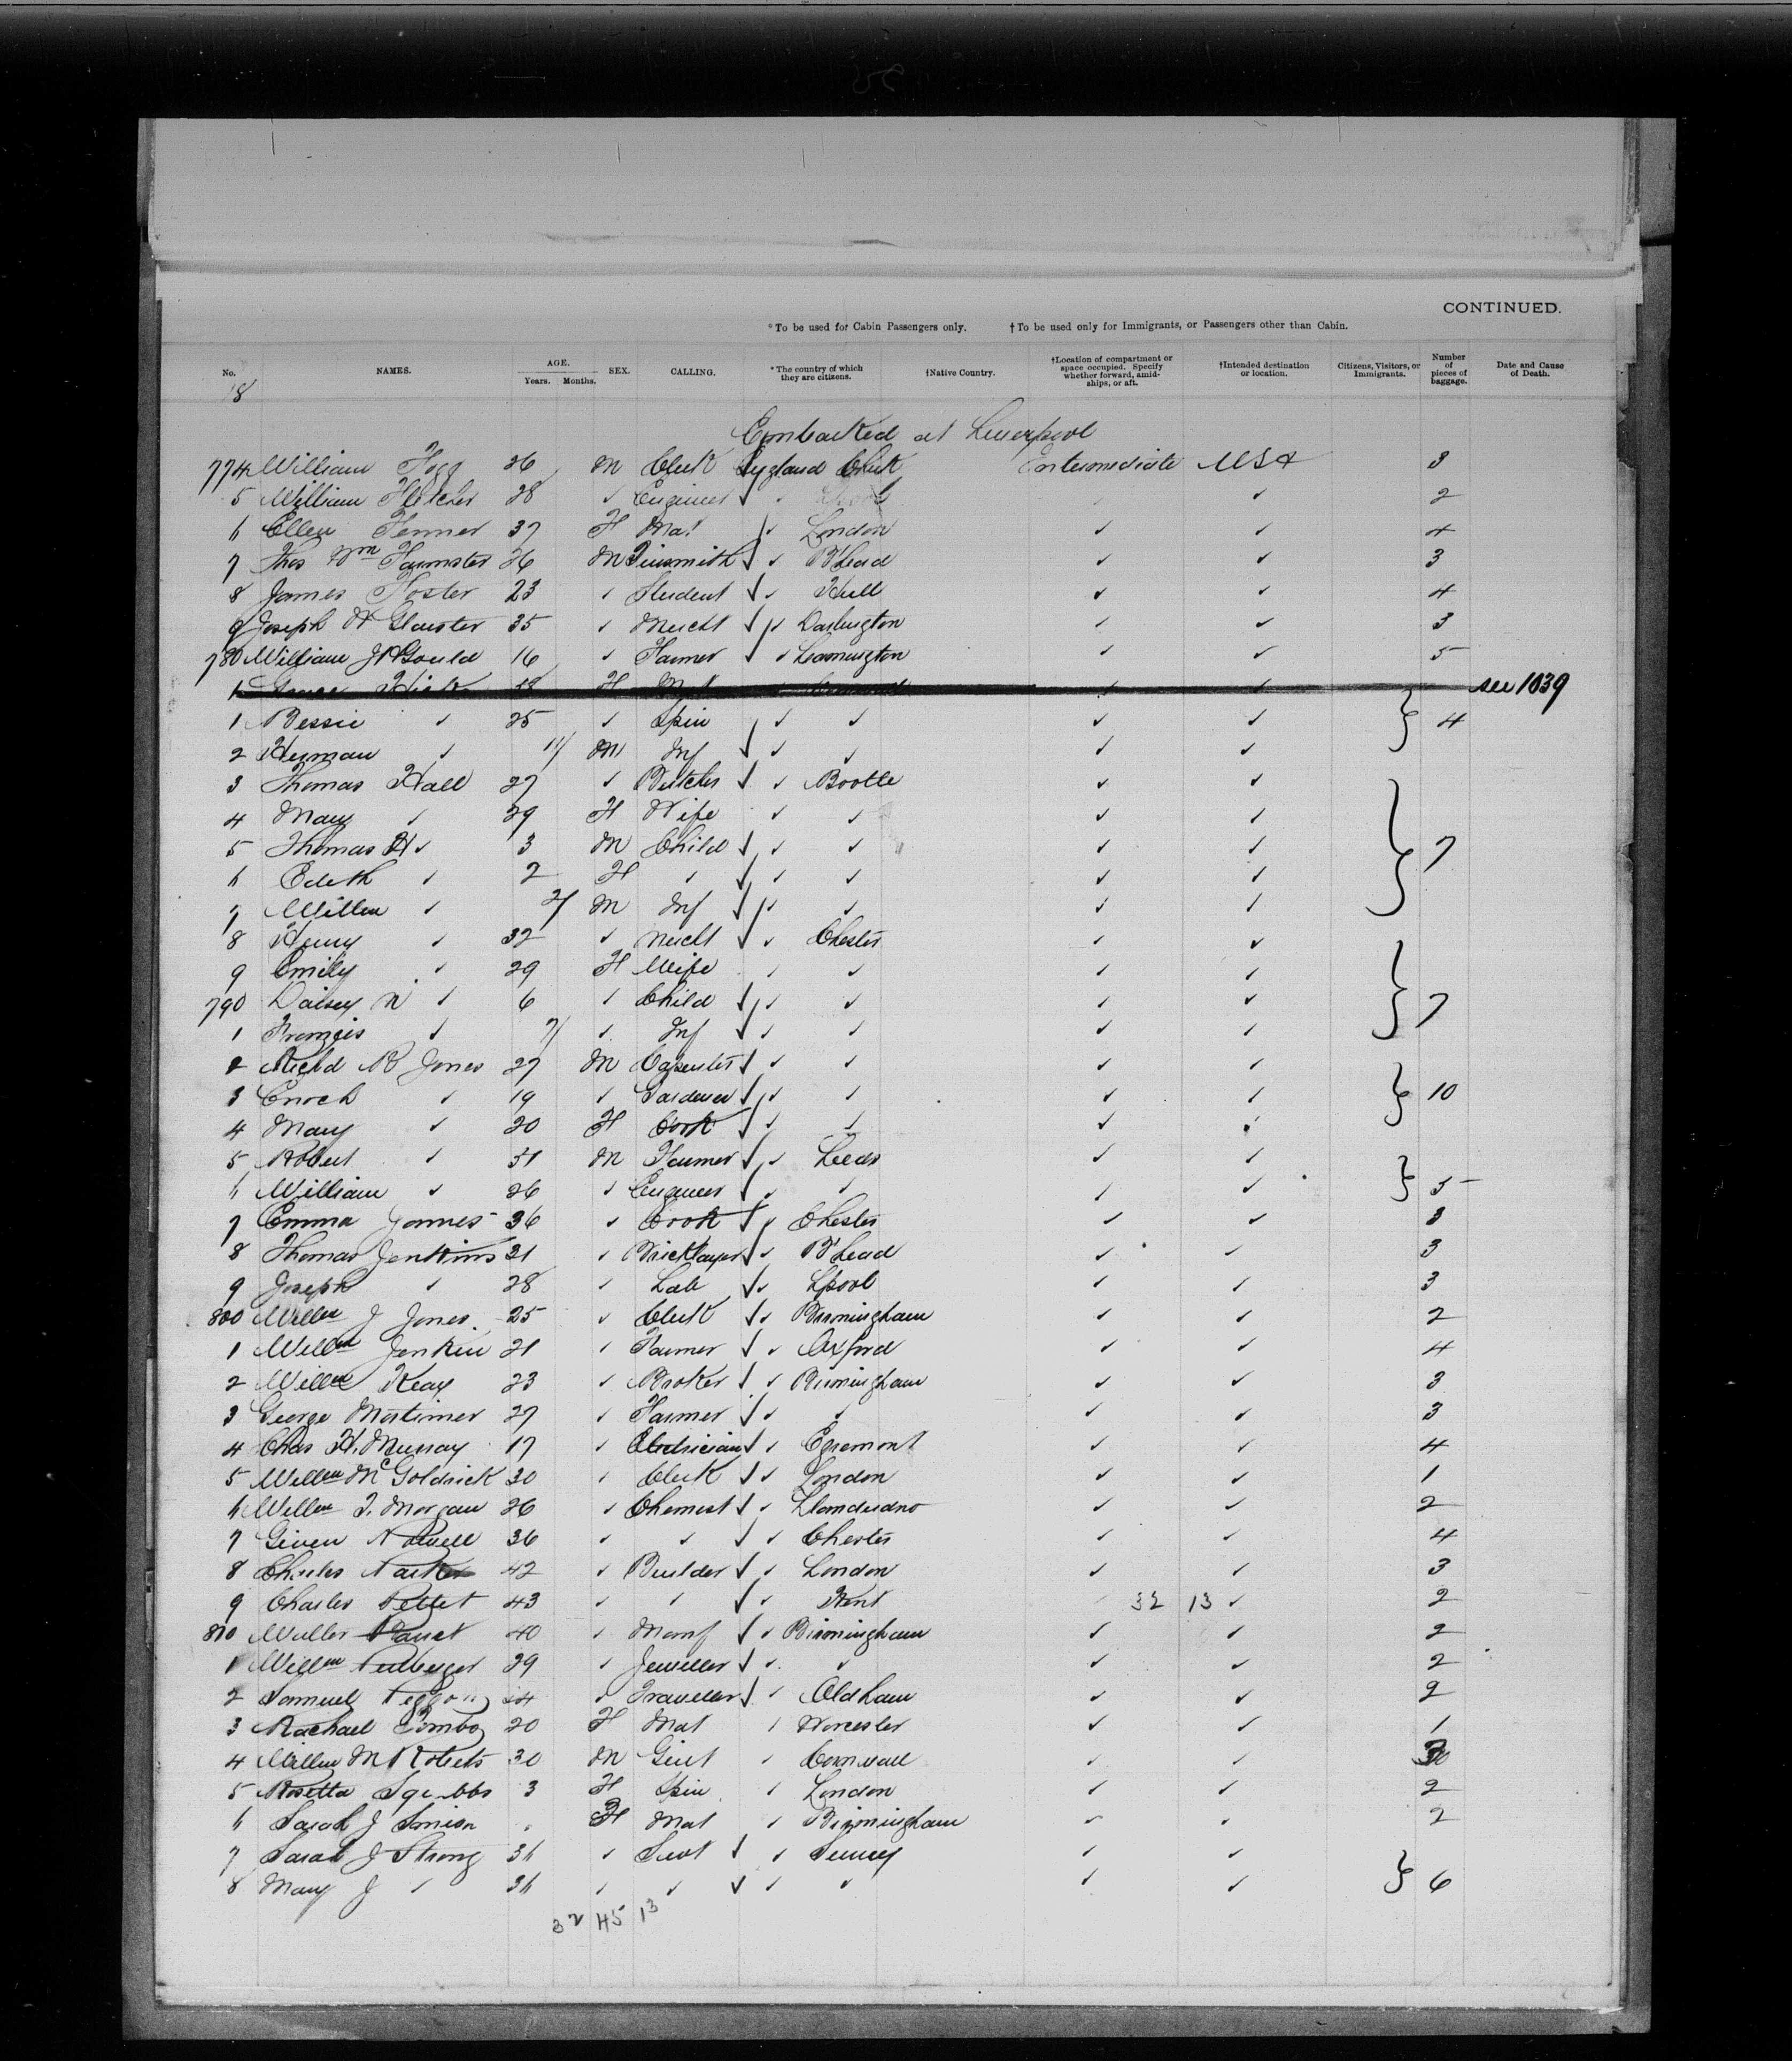 CONTINUED.
*To be used for Cabin Passengers only. †To be used only for Immigrants, or Passengers other than Cabin.
No. NAMES. AGE. Years. Months. SEX. CALLING. *The country of which they are citizens. †Native Country. †Location of compartment or space occupied. Specify whether forward, amidships, or aft. †Intended destination or location. Citizens, Visitors, or Immigrants. Number of pieces of baggage. Date and Cause of Death.
18
Embarked at Liverpool
774 William Fogg 26 M Clerk England Intermediate USA 3
5 William Fletcher 28 ✓ Engineer ✓ ✓ ✓ 2
6 Ellen Fenner 37 F Mat ✓ London ✓ ✓ 4
7 Thos Wm 26 M Tinsmith ✓ ✓ B'Head ✓ ✓ 3
8 James Foster 23 ✓ Student ✓ ✓ Hull ✓ ✓ 4
9 Joseph H Glouster 35 ✓ Mercht ✓ ✓ Darlington ✓ ✓ 3
780 William J Gould 16 ✓ Farmer ✓ Leamington ✓ ✓ 5
see 1039
1 Bessie ✓ 25 ✓ Spin ✓ ✓ ✓ ✓ ✓ } 4
2 Herman ✓ 11/ M Inf ✓ ✓ ✓ ✓ ✓
3 Thomas Hall 27 ✓ Butcher ✓ ✓ Bootle ✓ ✓
4 Mary ✓ 29 F Wife ✓ ✓ ✓ ✓
5 Thomas H ✓ 3 M Child ✓ ✓ ✓ ✓ ✓ } 7
6 Edith ✓ 2 F ✓ ✓ ✓ ✓ ✓ ✓
7 Willm ✓ M Inf ✓ ✓ ✓ ✓ ✓
8 Henry ✓ 32 ✓ Mercht ✓ ✓ Chester ✓ ✓
9 Emily ✓ 29 F Wife ✓ ✓ ✓ ✓
790 Daisey N ✓ 6 ✓ Child ✓ ✓ ✓ ✓ ✓ } 7
1 Francis ✓ 7/ ✓ Inf ✓ ✓ ✓ ✓ ✓
2 Richd R Jones 27 M Carpenter ✓ ✓ ✓ ✓ ✓
3 Enoch ✓ 19 ✓ Gardener ✓ ✓ ✓ ✓ ✓ } 10
4 Mary ✓ 20 F Cook ✓ ✓ ✓ ✓ ✓
5 Robert ✓ 31 M Farmer ✓ ✓ Leeds ✓ ✓
6 William ✓ 26 ✓ Engineer ✓ ✓ ✓ ✓ ✓ } 5
7 Emma James 36 ✓ Cook ✓ ✓ Chester ✓ ✓ 3
8 Thomas Jenkins 21 ✓ Bricklayer ✓ ✓ B'Head ✓ ✓ 3
9 Joseph ✓ 28 ✓ Lab ✓ ✓ Lpool ✓ ✓ 3
800 Willm J Jones 25 ✓ Clerk ✓ ✓ Birmingham ✓ ✓ 2
1 Willm Jenkin 21 ✓ Farmer ✓ ✓ Oxford ✓ ✓ 4
2 Willm Keay 23 ✓ Broker ✓ ✓ Birmingham ✓ ✓ 3
3 George Mortimer 27 ✓ Farmer ✓ ✓ ✓ ✓ ✓ 3
4 Chas H. Murray 17 ✓ Electrician ✓ ✓ Egremont ✓ ✓ 4
5 Willm McGoldrick 30 ✓ Clerk ✓ ✓ London ✓ ✓ 1
6 Willm T. Morgan 26 ✓ Chemist ✓ ✓ Llandudno ✓ ✓ 2
7 Given 36 ✓ ✓ ✓ ✓ Chester ✓ ✓ 4
8 Charles Parker 42 ✓ Builder ✓ ✓ London ✓ ✓ 3
9 Charles Pellet 43 ✓ ✓ ✓ ✓ Kent 32 13 ✓ 2
810 40 ✓ Manf ✓ ✓ Birmingham ✓ ✓ 2
1 Willm 29 ✓ Jeweller ✓ ✓ ✓ ✓ ✓ 2
2 Samuel ✓ Traveller ✓ ✓ Oldham ✓ ✓ 2
3 Rachael 20 F Mat ✓ Worcester ✓ ✓ 1
4 Willm M Roberts 30 M Gent ✓ Cornwall ✓ ✓
5 Rosetta 3 F Spin ✓ London ✓ ✓ 2
6 Sarah J F Mat ✓ Birmingham ✓ ✓ 2
7 Sarah J Strong 36 ✓ Servt ✓ ✓ Surrey ✓ ✓
8 Mary J ✓ 36 ✓ ✓ ✓ ✓ ✓ ✓ ✓ } 6
32 45 13